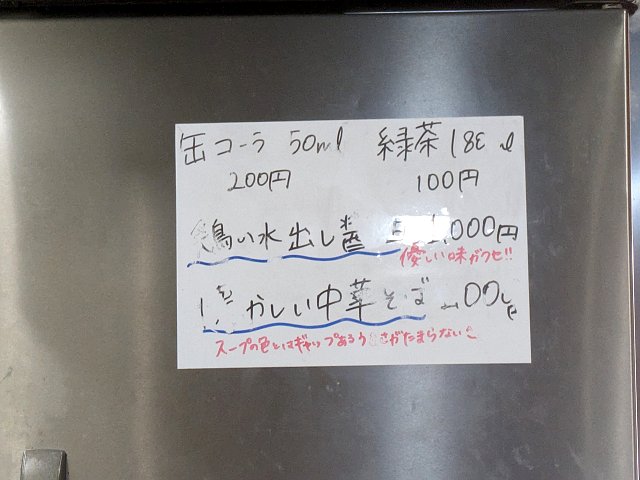 缶コーラ 50ml 緑茶
200円 100円
水出し ,000円
優しい味がクセ!!
かしい中華そば
スープの色とはギャップある さがたまらない